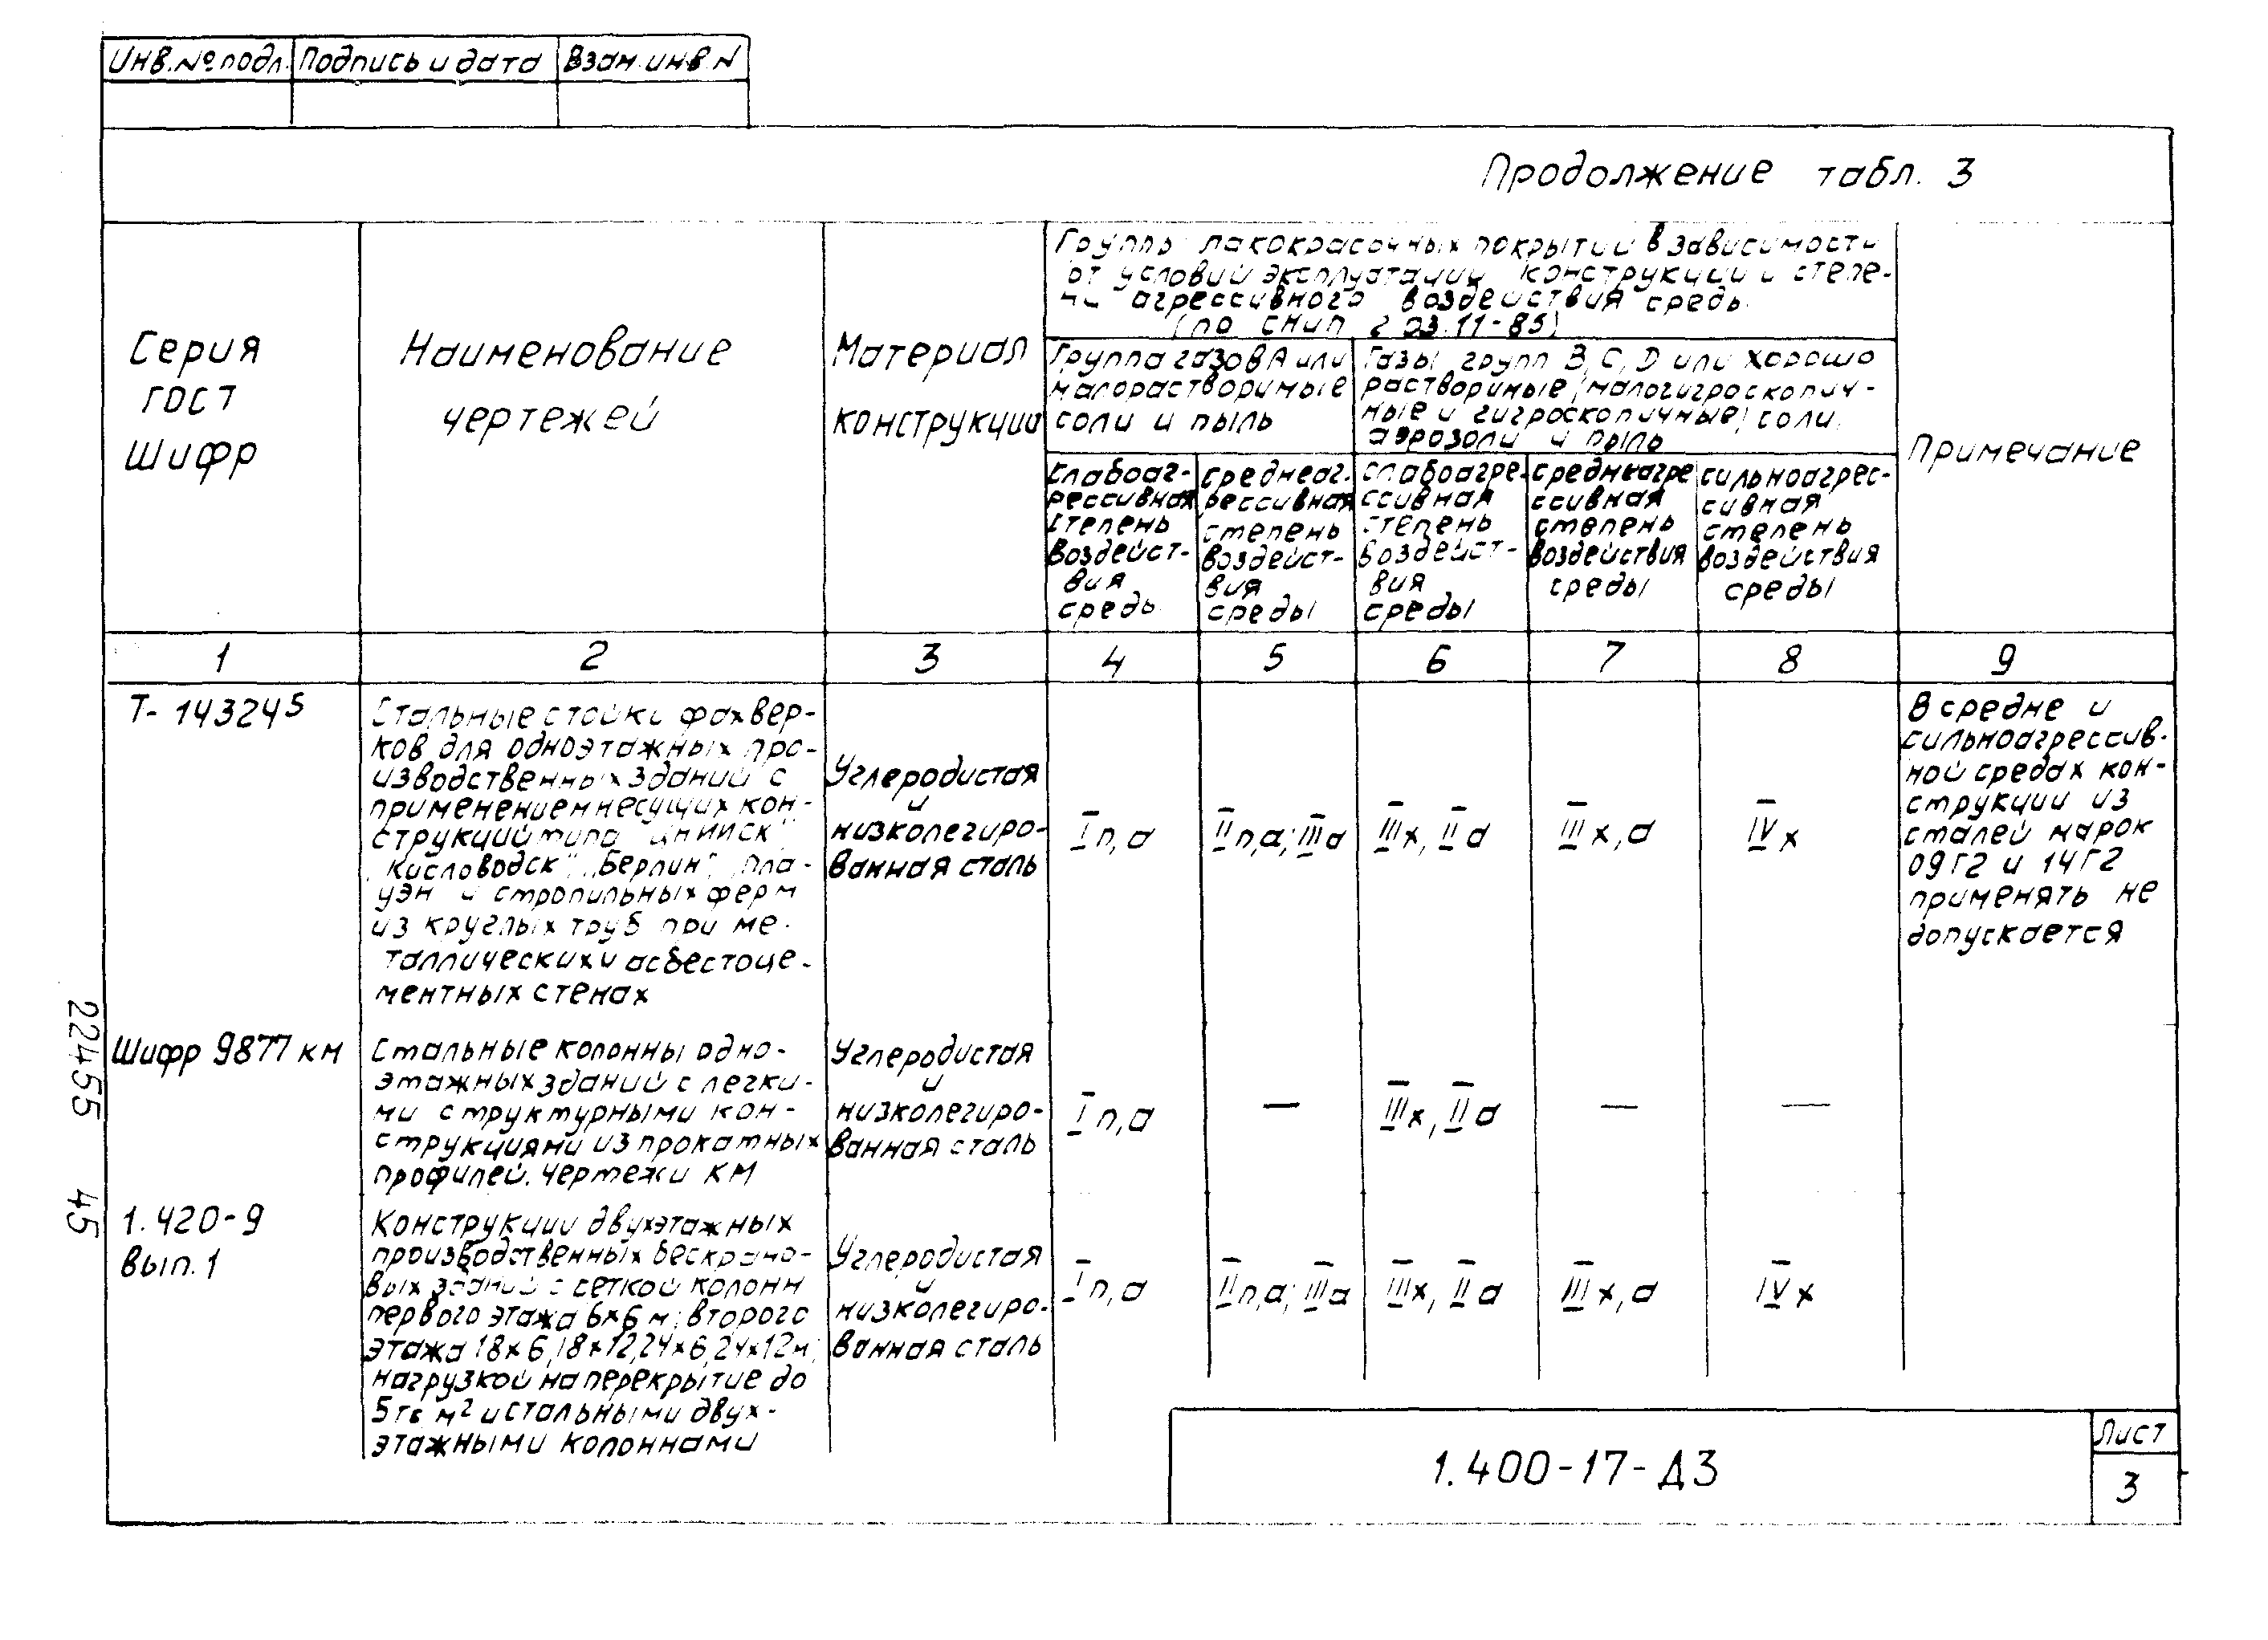 Инв.№ подл. Подпись и дата Взам.инв.N
Продолжение табл. 3
Серия
ГОСТ
Шифр
Наименование
чертежей
Материал
конструкции
Группы лакокрасочных покрытий в зависимости
от условий эксплуатации конструкции и степе-
ни агрессивного воздействия среды
(по СНиП 2.03.11-85)
Группа газов А или
малорастворимые
соли и пыль
Газы групп В, С, D или хорошо
растворимые (малогигроскопич-
ные и гигроскопичные) соли,
аэрозоли и пыль
слабоаг-
рессивная
степень
воздейст-
вия
среды
среднеаг-
рессивная
степень
воздейст-
вия
среды
слабоагре-
ссивная
степень
воздейст-
вия
среды
среднеагре
ссивная
степень
воздействия
среды
сильноагрес-
сивная
степень
воздействия
среды
Примечание
1 2 3 4 5 6 7 8 9
Т-143245
Стальные стойки фахвер-
ков для одноэтажных про-
изводственных зданий с
применением несущих кон-
струкций типа "ЦНИИСК",
"Кисловодск", "Берлин", "Пла-
уэн" и стропильных ферм
из круглых труб при ме-
таллических и асбестоце-
ментных стенах
Углеродистая
и
низколегиро-
ванная сталь
I п, а
II п, а; III а
III х, II а
III х, а
IV х
В средне и
сильноагрессив-
ной средах кон-
струкции из
сталей марок
09Г2 и 14Г2
применять не
допускается
Шифр 9877 км
Стальные колонны одно-
этажных зданий с легки-
ми структурными кон-
струкциями из прокатных
профилей. Чертежи КМ
Углеродистая
и
низколегиро-
ванная сталь
I п, а
—
III х, II а
—
—
1.420-9
Вып. 1
Конструкции двухэтажных
производственных бескрано-
вых зданий с сеткой колонн
первого этажа 6х6 м, второго
этажа 18х6, 18х12, 24х6, 24х12м,
нагрузкой на перекрытие до
5тс м² и стальными двух-
этажными колоннами
Углеродистая
и
низколегиро-
ванная сталь
I п, а
II п, а; III а
III х, II а
III х, а
IV х
22455 45
1.400-17-Д3
Лист
3